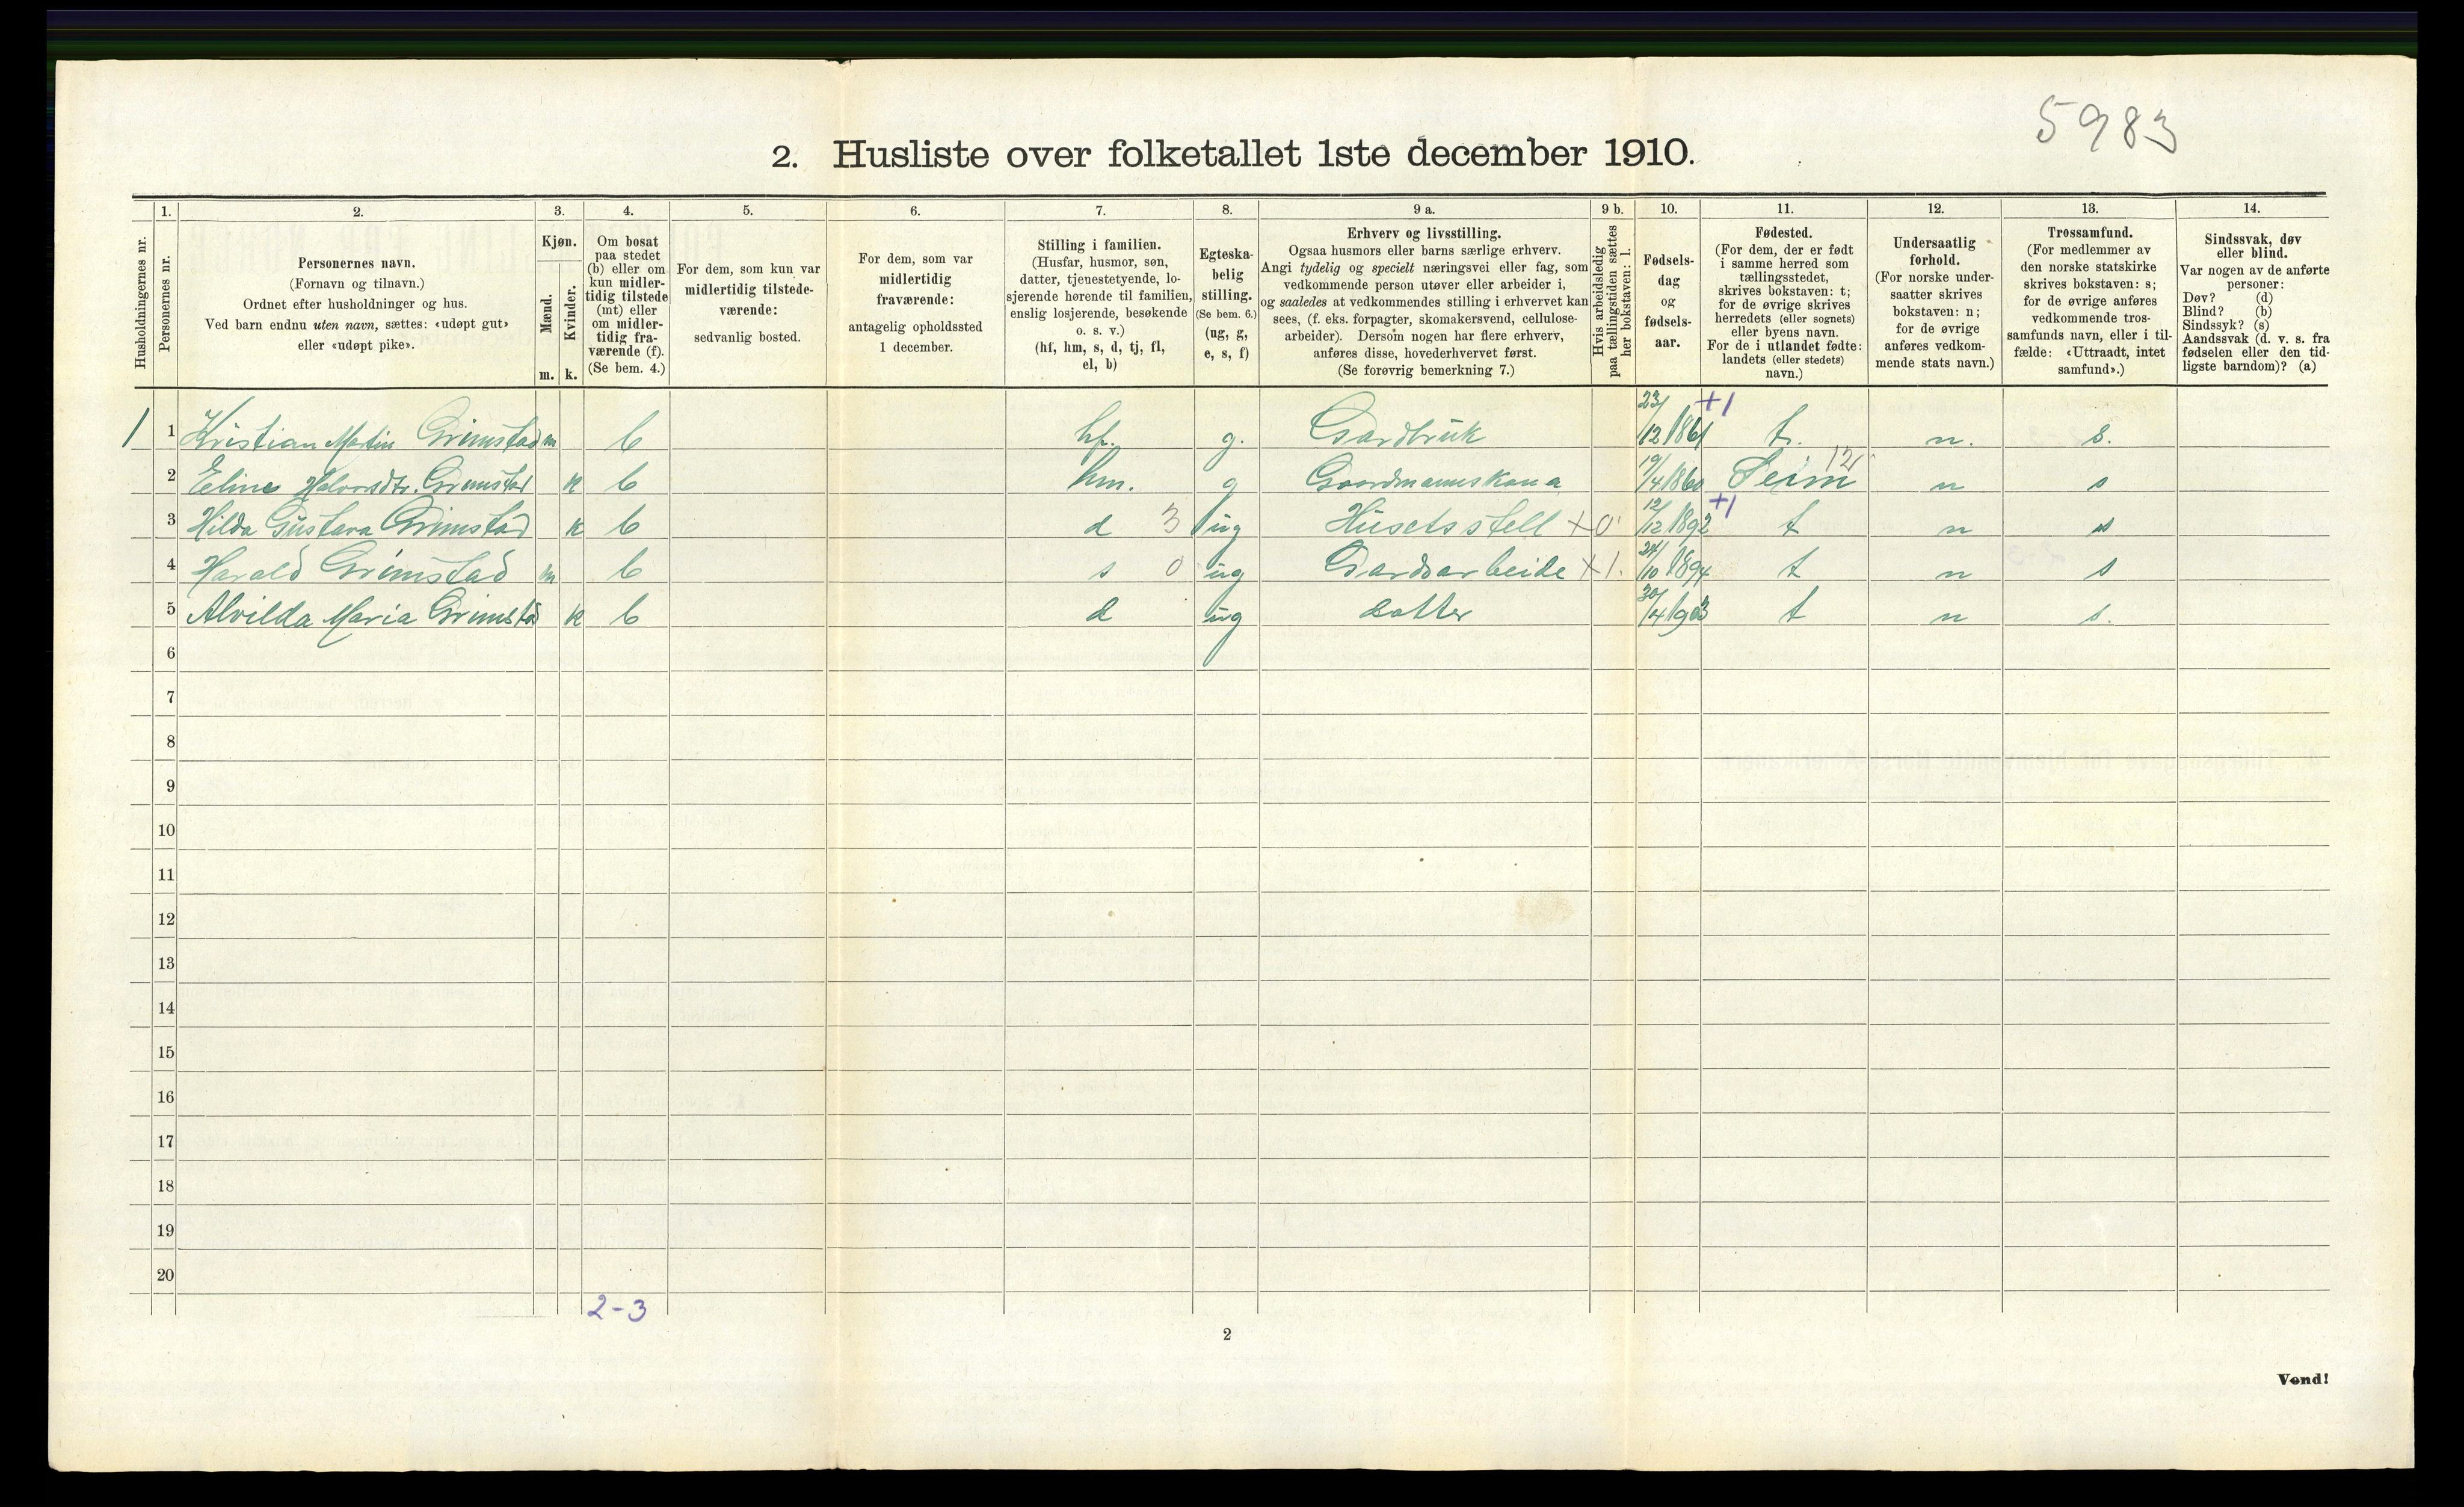 5983
2. Husliste over folketallet 1ste december 1910.
Husholdningernes nr.
1.
Personernes nr.
2.
Personernes navn.
(Fornavn og tilnavn.)
Ordnet efter husholdninger og hus.
Ved barn endnu uten navn, sættes: «udøpt gut»
eller «udøpt pike».
3.
Kjøn.
Mænd.
Kvinder.
m. k.
4.
Om bosat
paa stedet
(b) eller om
kun midler-
tidig tilstede
(mt) eller
om midler-
tidig fra-
værende (f).
(Se bem. 4.)
5.
For dem, som kun var
midlertidig tilstede-
værende:
sedvanlig bosted.
6.
For dem, som var
midlertidig
fraværende:
antagelig opholdssted
1 december.
7.
Stilling i familien.
(Husfar, husmor, søn,
datter, tjenestetyende, lo-
sjerende hørende til familien,
enslig losjerende, besøkende
o. s. v.)
(hf, hm, s, d, tj, fl,
el, b)
8.
Egteska-
belig
stilling.
(Se bem. 6.)
(ug, g,
e, s, f)
9 a.
Erhverv og livsstilling.
Ogsaa husmors eller barns særlige erhverv.
Angi tydelig og specielt næringsvei eller fag, som
vedkommende person utøver eller arbeider i,
og saaledes at vedkommendes stilling i erhvervet kan
sees, (f. eks. forpagter, skomakersvend, cellulose-
arbeider). Dersom nogen har flere erhverv,
anføres disse, hovederhvervet først.
(Se forøvrig bemerkning 7.)
9 b.
Hvis arbeidsledig
paa tællingstiden sættes
her bokstaven: l.
10.
Fødsels-
dag
og
fødsels-
aar.
11.
Fødested.
(For dem, der er født
i samme herred som
tællingsstedet,
skrives bokstaven: t;
for de øvrige skrives
herredets (eller sognets)
eller byens navn.
For de i utlandet fødte:
landets (eller stedets)
navn.)
12.
Undersaatlig
forhold.
(For norske under-
saatter skrives
bokstaven: n;
for de øvrige
anføres vedkom-
mende stats navn.)
13.
Trossamfund.
(For medlemmer av
den norske statskirke
skrives bokstaven: s;
for de øvrige anføres
vedkommende tros-
samfunds navn, eller i til-
fælde: «Uttraadt, intet
samfund».)
14.
Sindssvak, døv
eller blind.
Var nogen av de anførte
personer:
Døv? (d)
Blind? (b)
Sindssyk? (s)
Aandssvak (d. v. s. fra
fødselen eller den tid-
ligste barndom)? (a)
1 1 Kristian Martin Grimstad m b hf. g. Gardbruk 23/12 1861 +1 t. n. s.
2 Eline Halvorsdtr. Grimstad k b hm. g Gaardmannskona 19/4 1860 Seim 12 n s
3 Hilda Gustava Grimstad k b d 3 ug Husetsstell +0 12/12 1892 +1 t n s
4 Harald Grimstad m b s 0 ug Gardsarbeide +1. 24/10 1894 t n s
5 Alvilda Maria Grimstad k b d ug datter 30/4 1903 t n s.
6
7
8
9
10
11
12
13
14
15
16
17
18
19
20
2-3
2
Vend!